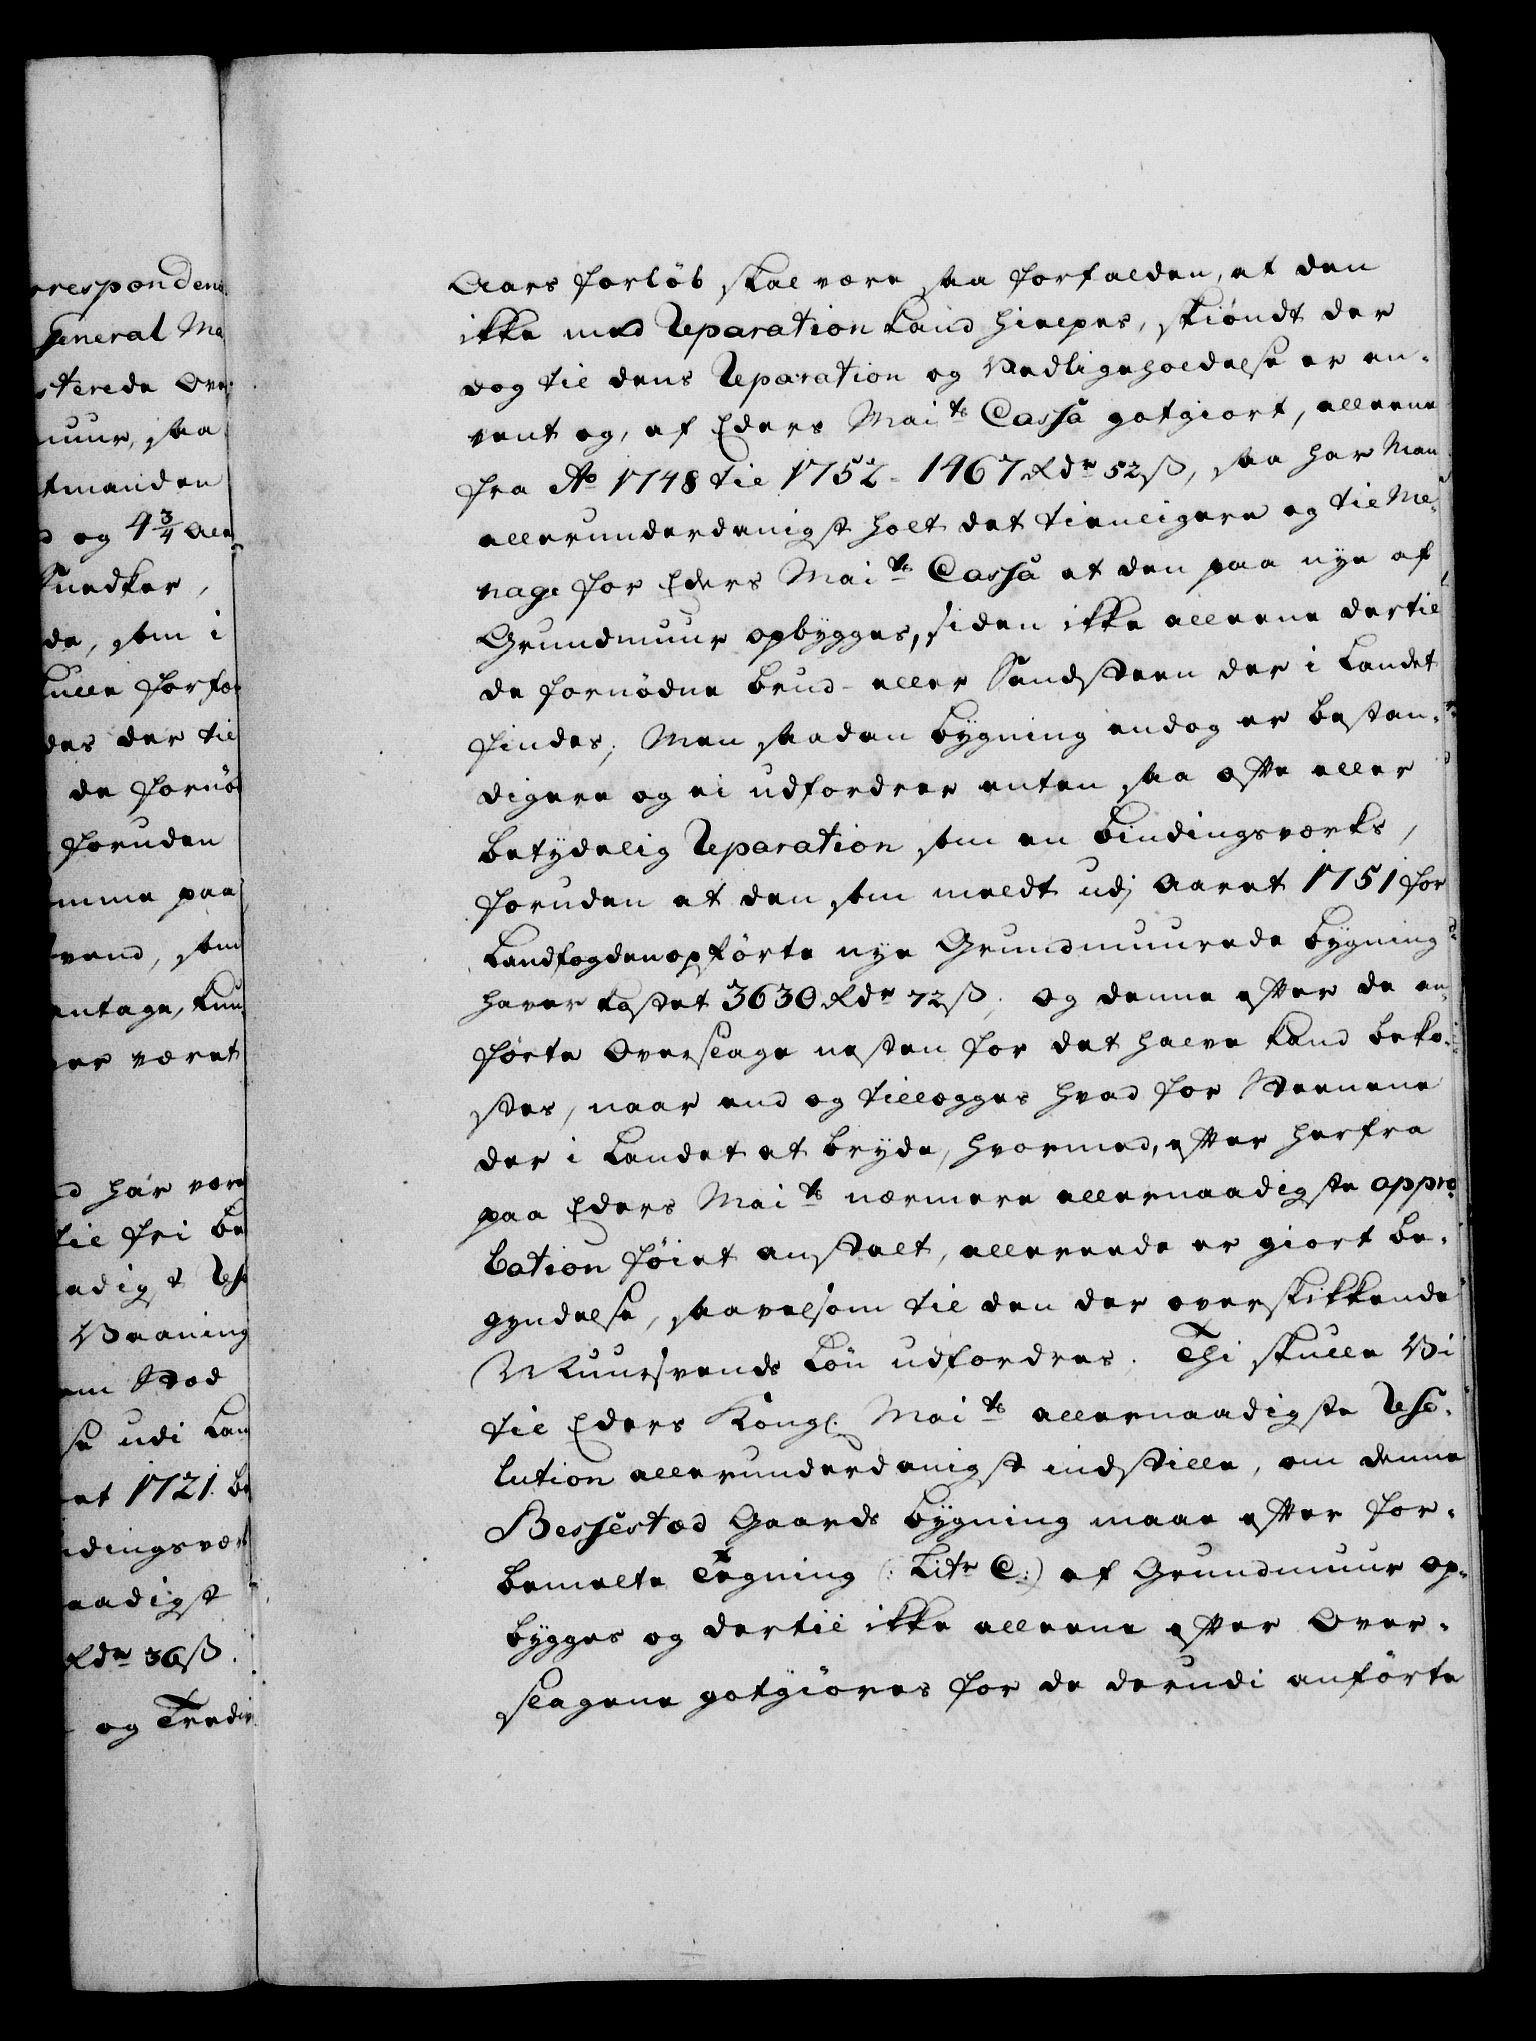 respondence
General Ma
sterede Over
muur, saa
tmanden
og 4 3/4 Alen
Snedker,
de, som i
kulle forfor
des der til
de fornø
foruden
mme paa
vend, som
antage, kun
er været
har være
til fri be
adigst Reso
Vaaning
em Stod
se udi Lan
et 1721. be
dingsverk
aadigst
Rdr 36 ß.
og Tredie
Aars forløb skal være saa forfalden, at den
ikke med Reparation kand hielpes, skiøndt der
dog til dens Reparation og Vedligeholdelse er an-
vent og, af Eders Maits Cassa gotgiort, alleene
fra Ao 1748 til 1752 - 1467 Rdr 52 ß, saa har Man
allerunderdanigst holt det tienligere og til Me-
nage for Eders Maits Cassa at den paa nye af
Grundmuur opbygges, siden ikke alleene dertil
de fornødne brud- eller Sandsteen der i Landet
findes; Men saadan bygning endog er bestan-
digere og ei udfordrer enten saa ofte eller
betydelig Reparation som en bindingsverks,
foruden at den som meldt udj Aaret 1751 for
Landfogden opførte nye Grundmuurede bygning
haver kostet 3630 Rdr 72 ß, og denne efter de an-
førte Overslage nesten for det halve kand beko-
stes, naar end og tillægges hvad for Steenene
der i Landet at bryde, hvormed, efter herfra
paa Eders Maits nærmere allernaadigste appro-
bation føiet anstalt, allereede er giort be-
gyndelse, saavelsom til den der overskikkende
Muursvends Løn udfordres. Thi skulle Vi
til Eders Kongl. Maits allernaadigste Reso-
lution allerunderdanigst indstille, om denne
Bessested Gaards bygning maae efter for-
bemelte Tegning (: Litr C :) af Grundmuur op-
bygges og dertil ikke alleene efter Over-
slagene gotgiøres for de derudi anførte